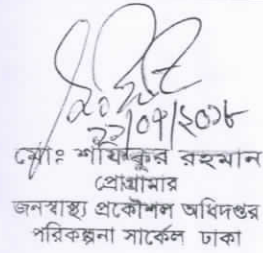 ২২/০৭/২০১৮
মোঃ শফিকুর রহমান
প্রোগ্রামার
জনস্বাস্থ্য প্রকৌশল অধিদপ্তর
পরিকল্পনা সার্কেল ঢাকা